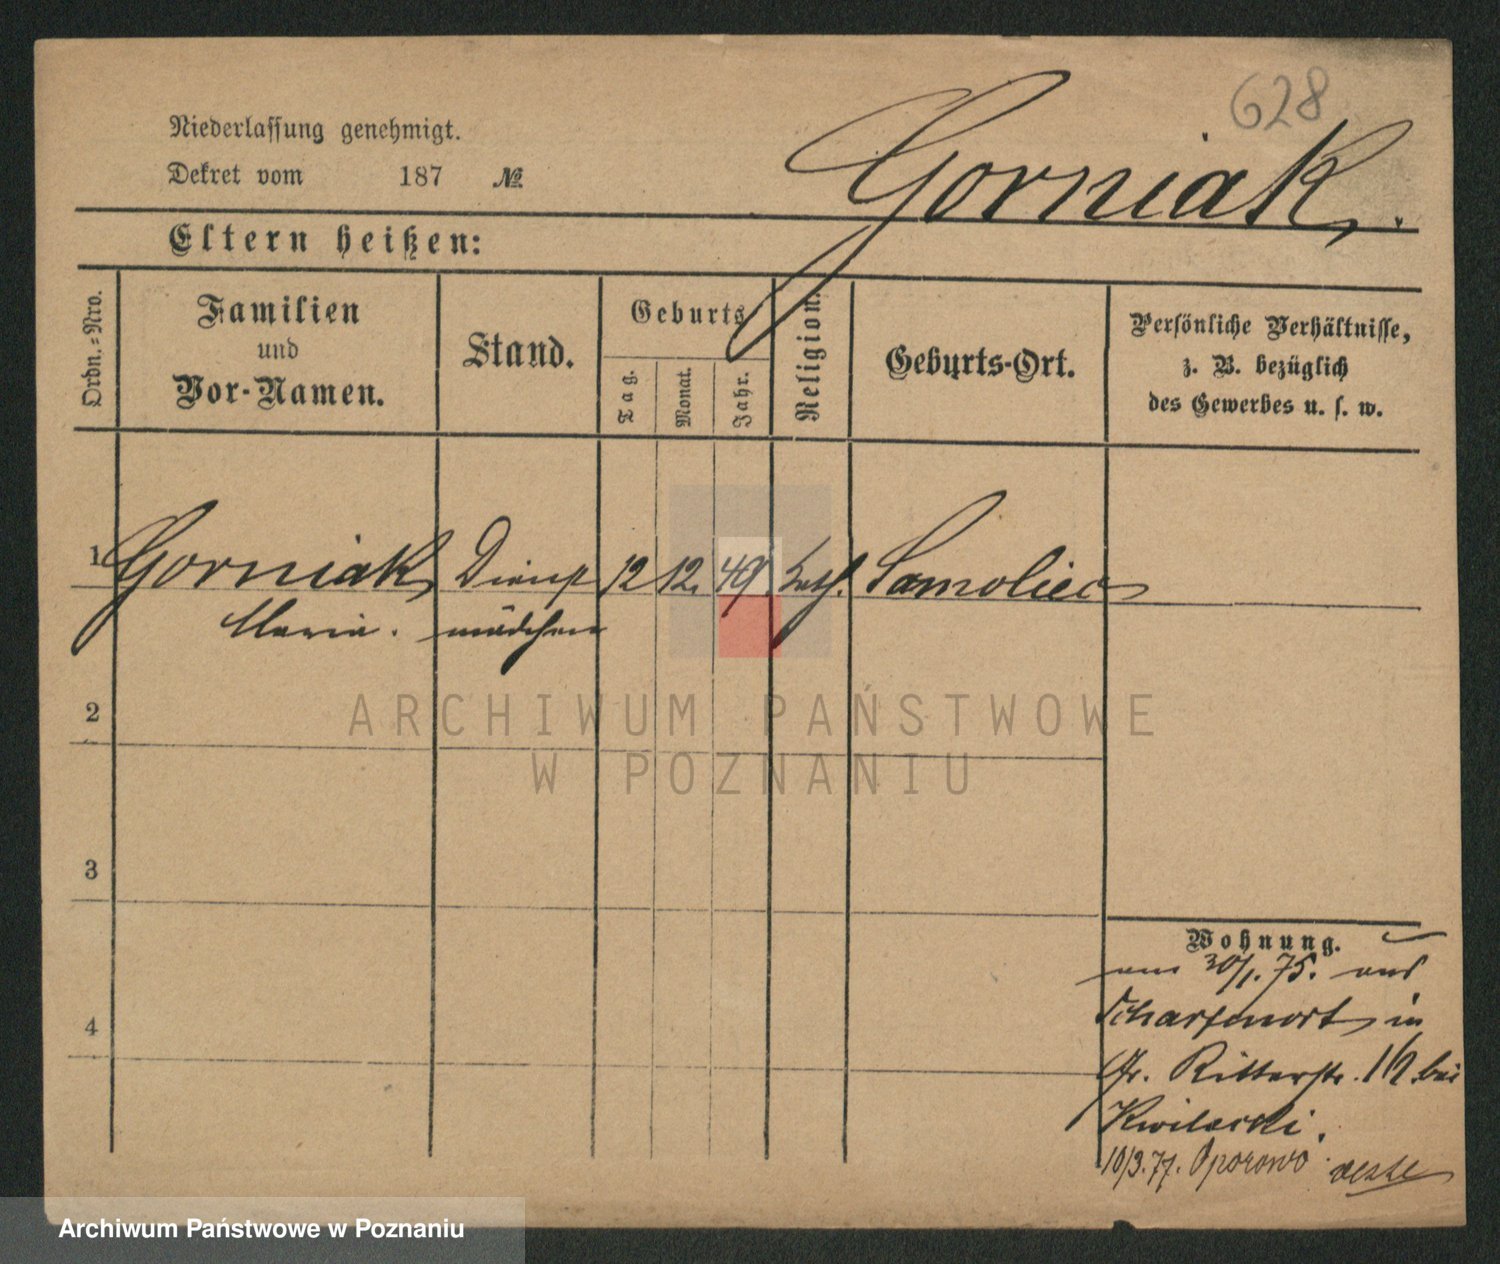 628
Niederlassung genehmigt.
Dekret vom 187 №
Gorniak.
Eltern heißen:
Ordn.=Nro.
Familien
und
Vor-Namen.
Stand.
Geburts
Tag.
Monat.
Jahr.
Religion.
Geburts-Ort.
Persönliche Verhältnisse,
z. B. bezüglich
des Gewerbes u. s. w.
1 Gorniak Dienst 12 12. 49. kath. Samoliec
Maria. mädchen
2
3
4
Wohnung.
am 30/1. 75. aus
Scharfenort in
Gr. Ritterstr. bei
Kwilecki.
10/3.77. Oporowo
ARCHIWUM PAŃSTWOWE
W POZNANIU
Archiwum Państwowe w Poznaniu